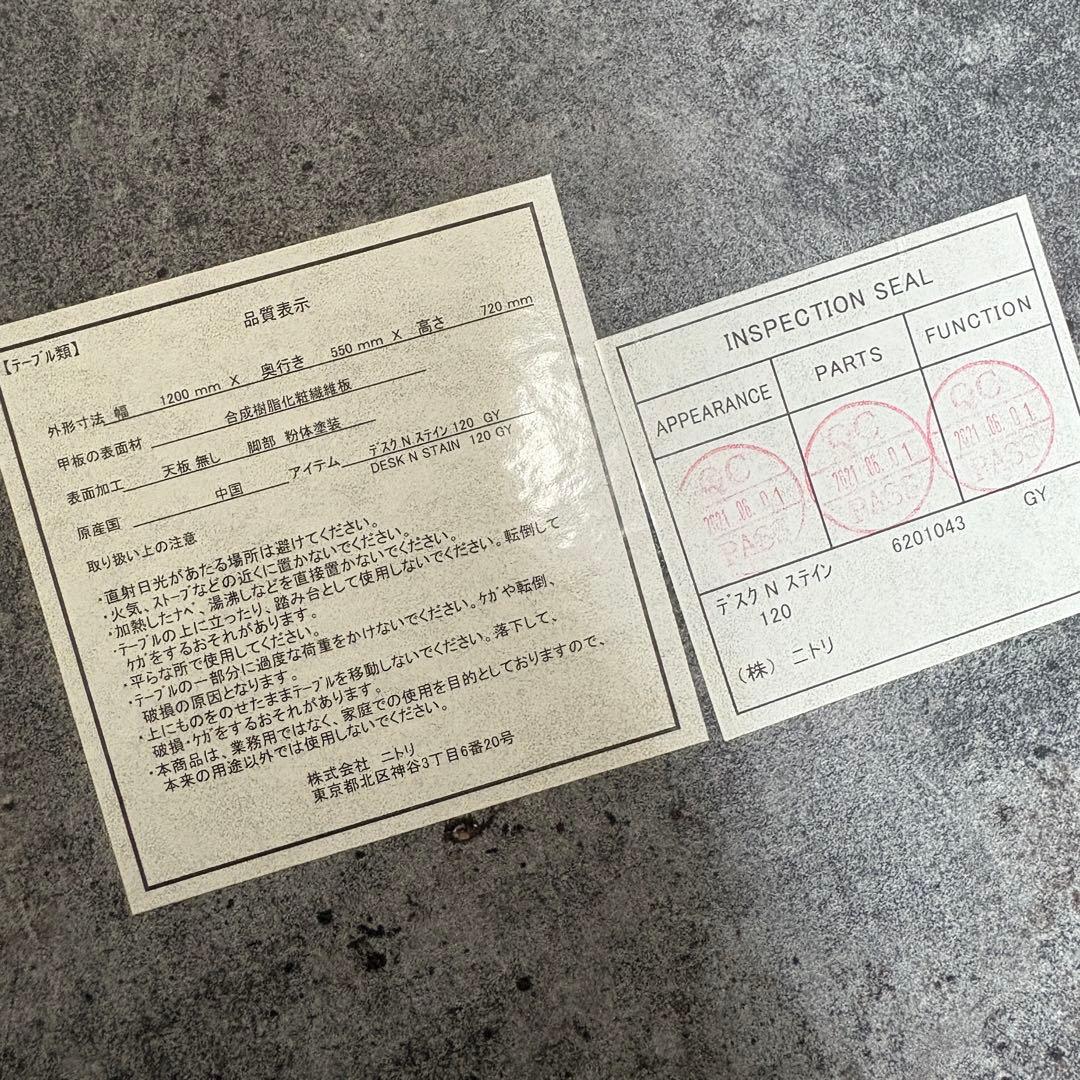 品質表示
【テーブル類】
外形寸法 幅 1200 mm X 奥行き 550 mm X 高さ 720 mm
甲板の表面材 合成樹脂化粧繊維板
表面加工 天板 無し 脚部 粉体塗装
原産国 中国 アイテム デスク N ステイン 120 GY
DESK N STAIN 120 GY
取り扱い上の注意
・直射日光があたる場所は避けてください。
・火気、ストーブなどの近くに置かないでください。
・加熱したナベ、湯沸しなどを直接置かないでください。
・テーブルの上に立ったり、踏み台として使用しないでください。転倒して
ケガをするおそれがあります。
・平らな所で使用してください。
・テーブルの一部分に過度な荷重をかけないでください。ケガや転倒、
破損の原因となります。
・上にものをのせたままテーブルを移動しないでください。落下して、
破損・ケガをするおそれがあります。
・本商品は、業務用ではなく、家庭での使用を目的としておりますので、
本来の用途以外では使用しないでください。
株式会社 ニトリ
東京都北区神谷3丁目6番20号
INSPECTION SEAL
APPEARANCE PARTS FUNCTION
QC 2021.06.01 PASS
QC 2021.06.01 PASS
QC 2021.06.01 PASS
6201043 GY
デスク N ステイン
120
（株） ニトリ